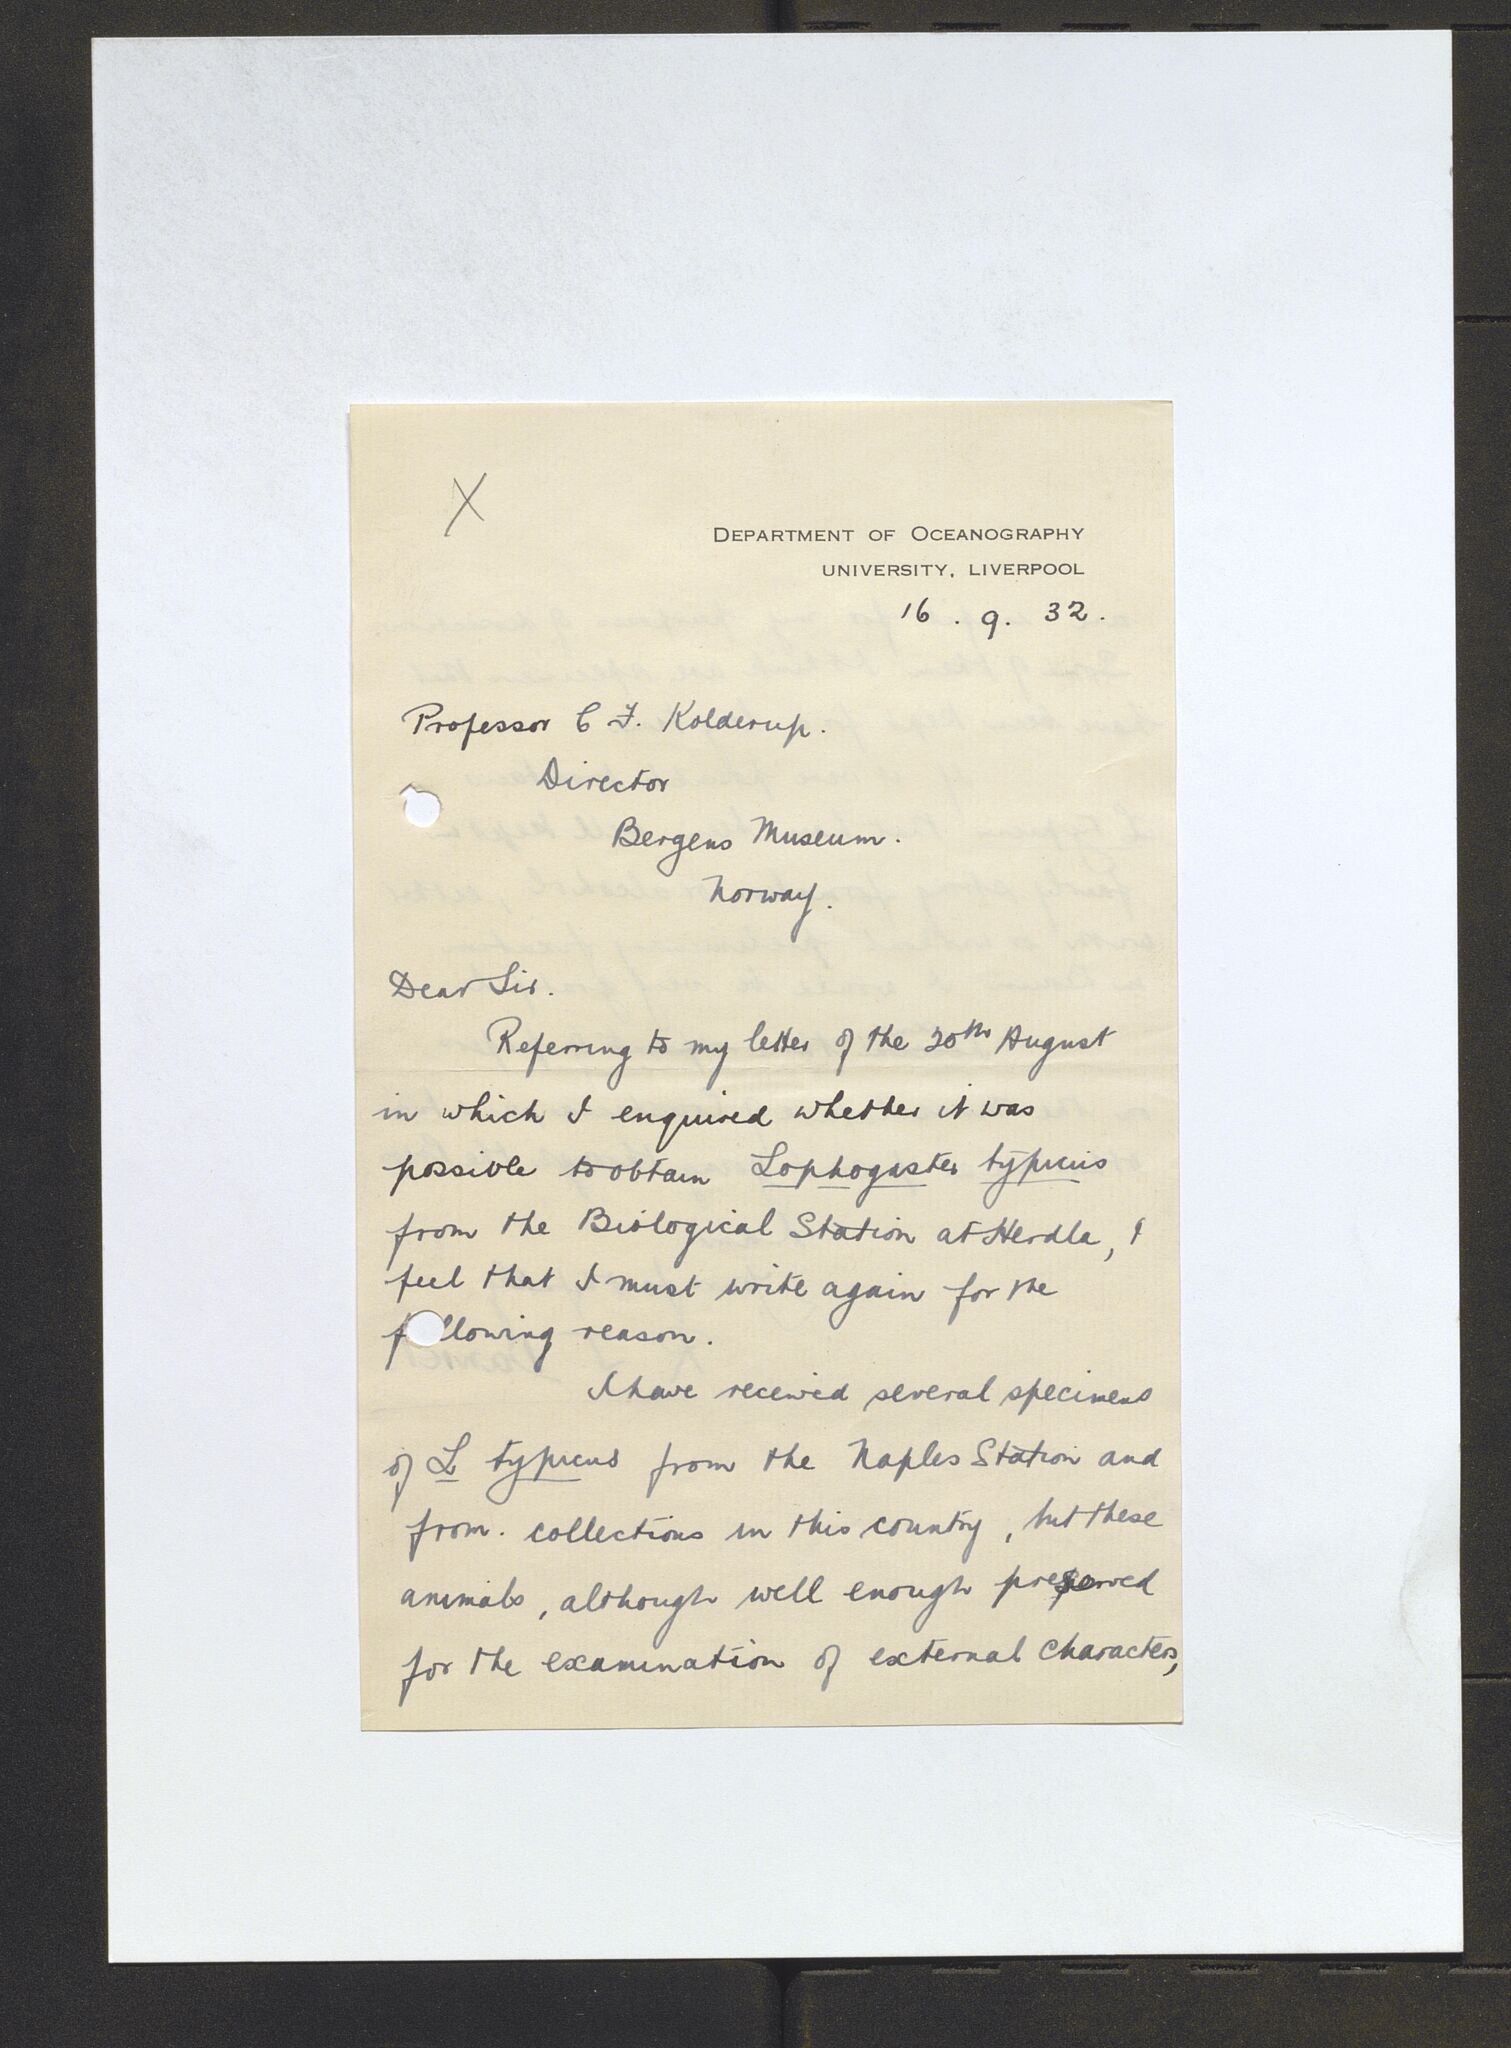 X
DEPARTMENT OF OCEANOGRAPHY
UNIVERSITY, LIVERPOOL
16 . 9 . 32 .
Professor C F. Kolderup.
Director
Bergens Museum.
Norway.
Dear Sir.
Referring to my letter of the 30th August
in which I enquired whether it was
possible to obtain Lophogaster typicus
from the Biological Station at Herdla, I
feel that I must write again for the
following reason.
I have received several specimens
of L typicus from the Naples Station and
from. collections in this country, but these
animals, although well enough preserved
for the examination of external characters,